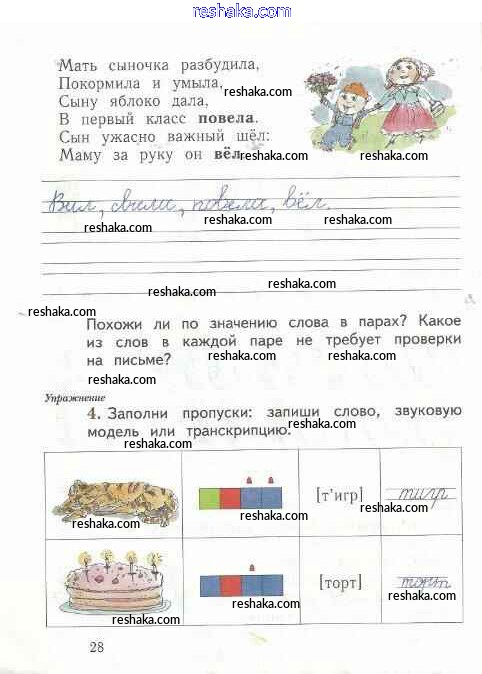 reshaka.com
Мать сыночка разбудила,
Покормила и умыла,
reshaka.com
Сыну яблоко дала,
reshaka.com
В первый класс повела.
reshaka.com
Сын ужасно важный шёл:
Маму за руку он вёл.
reshaka.com
reshaka.com
reshaka.com
reshaka.com
reshaka.com
reshaka.com
reshaka.com
reshaka.com
Похожи ли по значению слова в парах? Какое
из слов в каждой паре не требует проверки
на письме?
reshaka.com
reshaka.com
reshaka.com
Упражнение
4. Заполни пропуски: запиши слово, звуковую
модель или транскрипцию.
reshaka.com
reshaka.com
[т'игр] тигр
reshaka.com
reshaka.com
reshaka.com
reshaka.com
[торт] торт
reshaka.com
reshaka.com
reshaka.com
reshaka.com
28